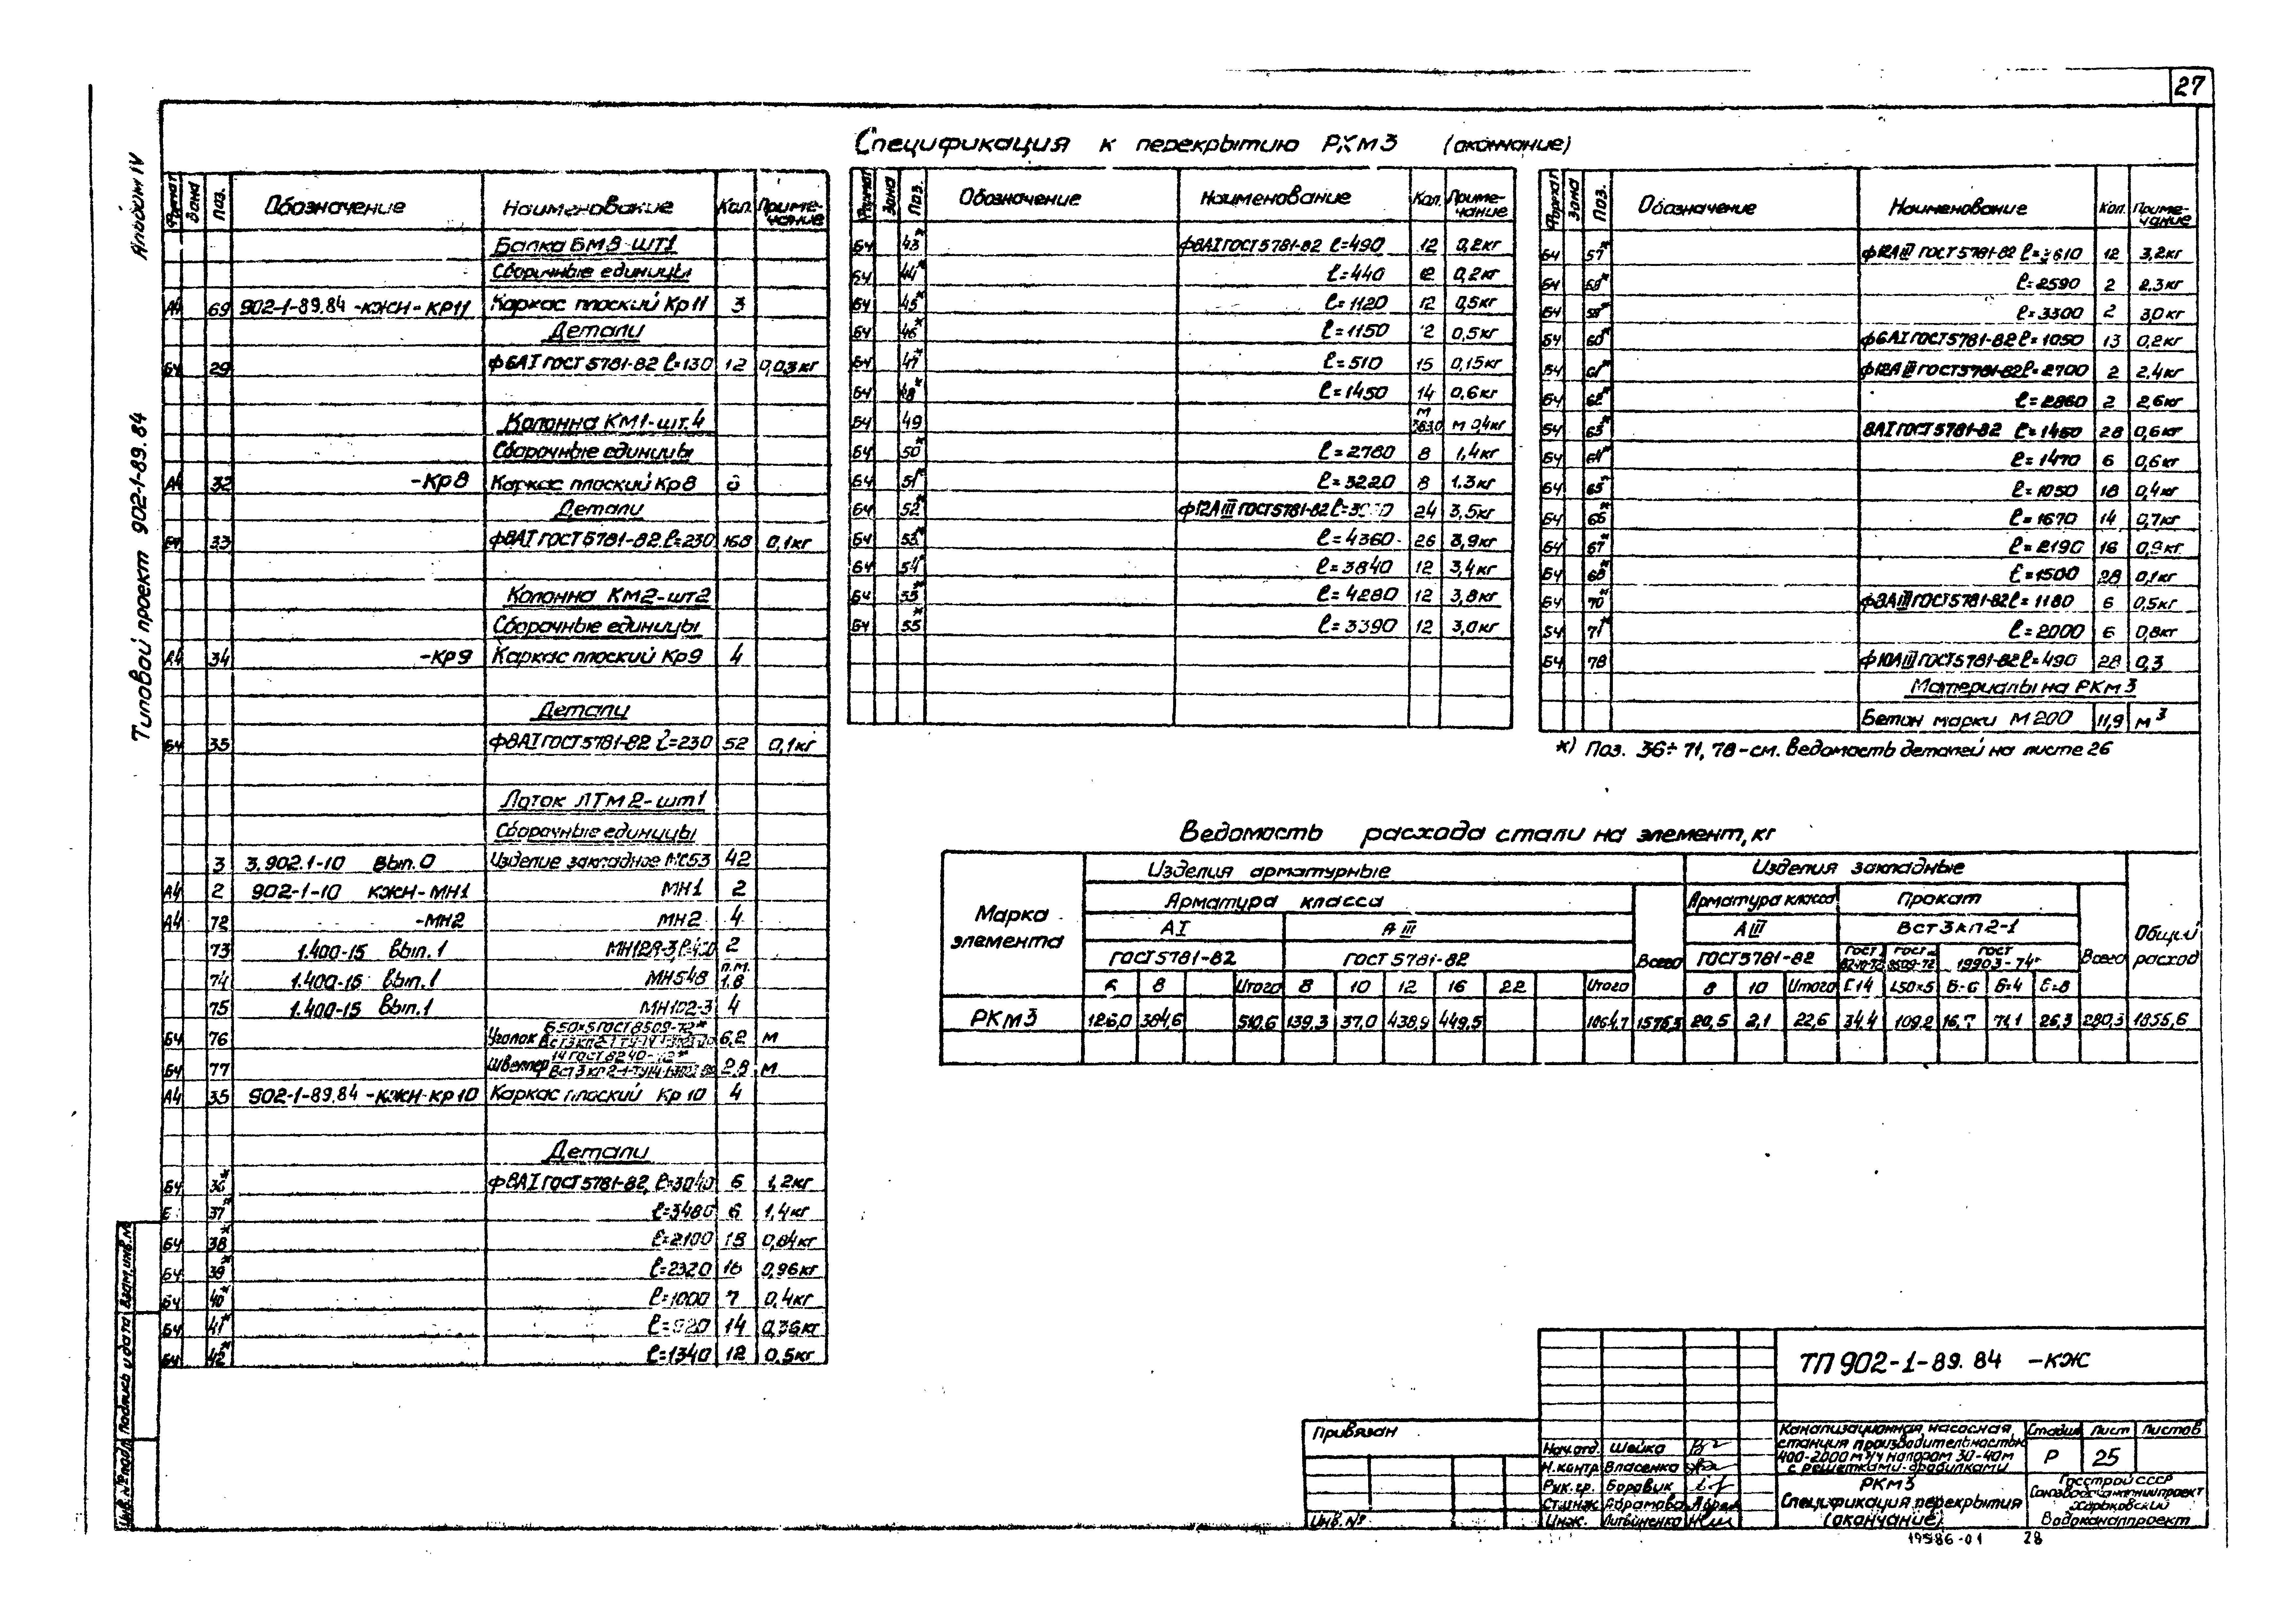 27
Альбом IV
Типовой проект 902-1-89.84
Спецификация к перекрытию РКм3 (окончание)
Формат Зона Поз. Обозначение Наименование Кол. Примечание
Балка БМ8 шт1
Сборочные единицы
А4 69 902-1-89.84 -КЖН-КР11 Каркас плоский Кр11 3
Детали
БЧ 29 ф6АI ГОСТ 5781-82 ℓ=130 12 0,03кг
Колонна КМ1-шт.4
Сборочные единицы
А4 32 -Кр8 Каркас плоский Кр8
Детали
БЧ 33 ф8АI ГОСТ 5781-82 ℓ=230 168 0,1кг
Колонна КМ2-шт2
Сборочные единицы
А4 34 -Кр9 Каркас плоский Кр9 4
Детали
БЧ 35 ф8АI ГОСТ 5781-82 ℓ=230 52 0,1кг
Лоток ЛТм2-шт1
Сборочные единицы
3 3.902.1-10 Вып.0 Изделие закладное МС53 42
А4 2 902-1-10 КЖН-МН1 МН1 2
А4 72 -МН2 МН2 4
73 1.400-15 Вып.1 2
74 1.400-15 Вып.1 МН548 п.м. 1.8
75 1.400-15 Вып.1 МН102-3 4
БЧ 76 Уголок 6,2 м
БЧ 77 Швеллер 2,8 м
А4 35 902-1-89.84 -КЖН-КР10 Каркас плоский Кр10 4
Детали
БЧ 36* ф8АI ГОСТ 5781-82 ℓ=3040 6 1,2кг
37* ℓ=3480 6 1,4кг
БЧ 38* ℓ=2100 18 0,84кг
БЧ 39* ℓ=2320 16 0,96кг
БЧ 40* ℓ=1000 7 0,4кг
БЧ 41* ℓ=920 14 0,36кг
БЧ 42* ℓ=1340 12 0,5кг
Формат Зона Поз. Обозначение Наименование Кол. Примечание
БЧ 43* ф8АI ГОСТ 5781-82 ℓ=490 12 0,2кг
БЧ 44* ℓ=440 12 0,2кг
БЧ 45* ℓ=1120 12 0,5кг
БЧ 46* ℓ=1150 0,5кг
БЧ 47* ℓ=510 15 0,15кг
БЧ 48* ℓ=1450 14 0,6кг
БЧ 49 м м 0,4кг
БЧ 50* ℓ=2780 8 1,4кг
БЧ 51* ℓ=3220 8 1.3кг
БЧ 52* ф12АIII ГОСТ 5781-82 24 3,5кг
БЧ 53* ℓ=4360 26 3,9кг
БЧ 54* ℓ=3840 12 3,4кг
БЧ 55* ℓ=4280 12 3,8кг
БЧ 55* ℓ=3390 12 3,0кг
Формат Зона Поз. Обозначение Наименование Кол. Примечание
БЧ 57* ф12АIII ГОСТ 5781-82 ℓ=3610 12 3,2кг
БЧ 58* ℓ=2590 2 2.3кг
БЧ 59* ℓ=3300 2 3,0кг
БЧ 60* ф6АI ГОСТ 5781-82 ℓ=1050 13 0,2кг
БЧ 61* ф12АIII ГОСТ 5781-82 ℓ=2700 2 2,4кг
БЧ 62* ℓ=2860 2 2,6кг
БЧ 63* 8АI ГОСТ 5781-82 ℓ=1460 28 0,6кг
БЧ 64* ℓ=1470 6 0,6кг
БЧ 65* ℓ=1050 18 0,4кг
БЧ 66* ℓ=1670 14 0,7кг
БЧ 67* ℓ=2190 16 0,9кг
БЧ 68* ℓ=1500 28 0,1кг
БЧ 70* ф8АIII ГОСТ 5781-82 ℓ=1180 6 0,5кг
БЧ 71* ℓ=2000 6 0,8кг
БЧ 78 ф10АIII ГОСТ 5781-82 ℓ=490 28 0,3
Материалы на РКм3
Бетон марки М200 11,9 м³
*) Поз. 36÷71, 78-см. Ведомость деталей на листе 26
Ведомость расхода стали на элемент, кг
Марка элемента Изделия арматурные Изделия закладные Общий расход
Арматура класса Всего Арматура класса Прокат Всего
АI АIII АIII Вст3кп2-1
ГОСТ 5781-82 ГОСТ 5781-82 ГОСТ 5781-82 ГОСТ 8240-72 ГОСТ 8509-72 ГОСТ 19903-74*
6 8 Итого 8 10 12 16 22 Итого 8 10 Итого С14 L50×5 б=6 б=4 б=8
РКМ3 126,0 384,6 510,6 139,3 37,0 438,9 449,5 1064,7 1575,3 20,5 2,1 22,6 34.4 109,2 16.7 71,1 26,3 280,3 1855,6
Инв.№подл. Подпись и дата Взам.инв.№
Привязан
Инв. №
ТП 902-1-89.84 -КЖ
Нач.отд. Шейко
Н.контр. Власенко
Рук.гр. Боровик
Ст.инж. Абрамова
Инж. Литвиненко
Канализационная насосная
станция производительностью
400-2000 м³/ч напором 30-40м
с решетками-дробилками
Стадия Лист Листов
Р 25
РКМ3
Спецификация перекрытия
(окончание)
Госстрой СССР
Союзводоканалниипроект
Харьковский
Водоканалпроект
19586-01 28